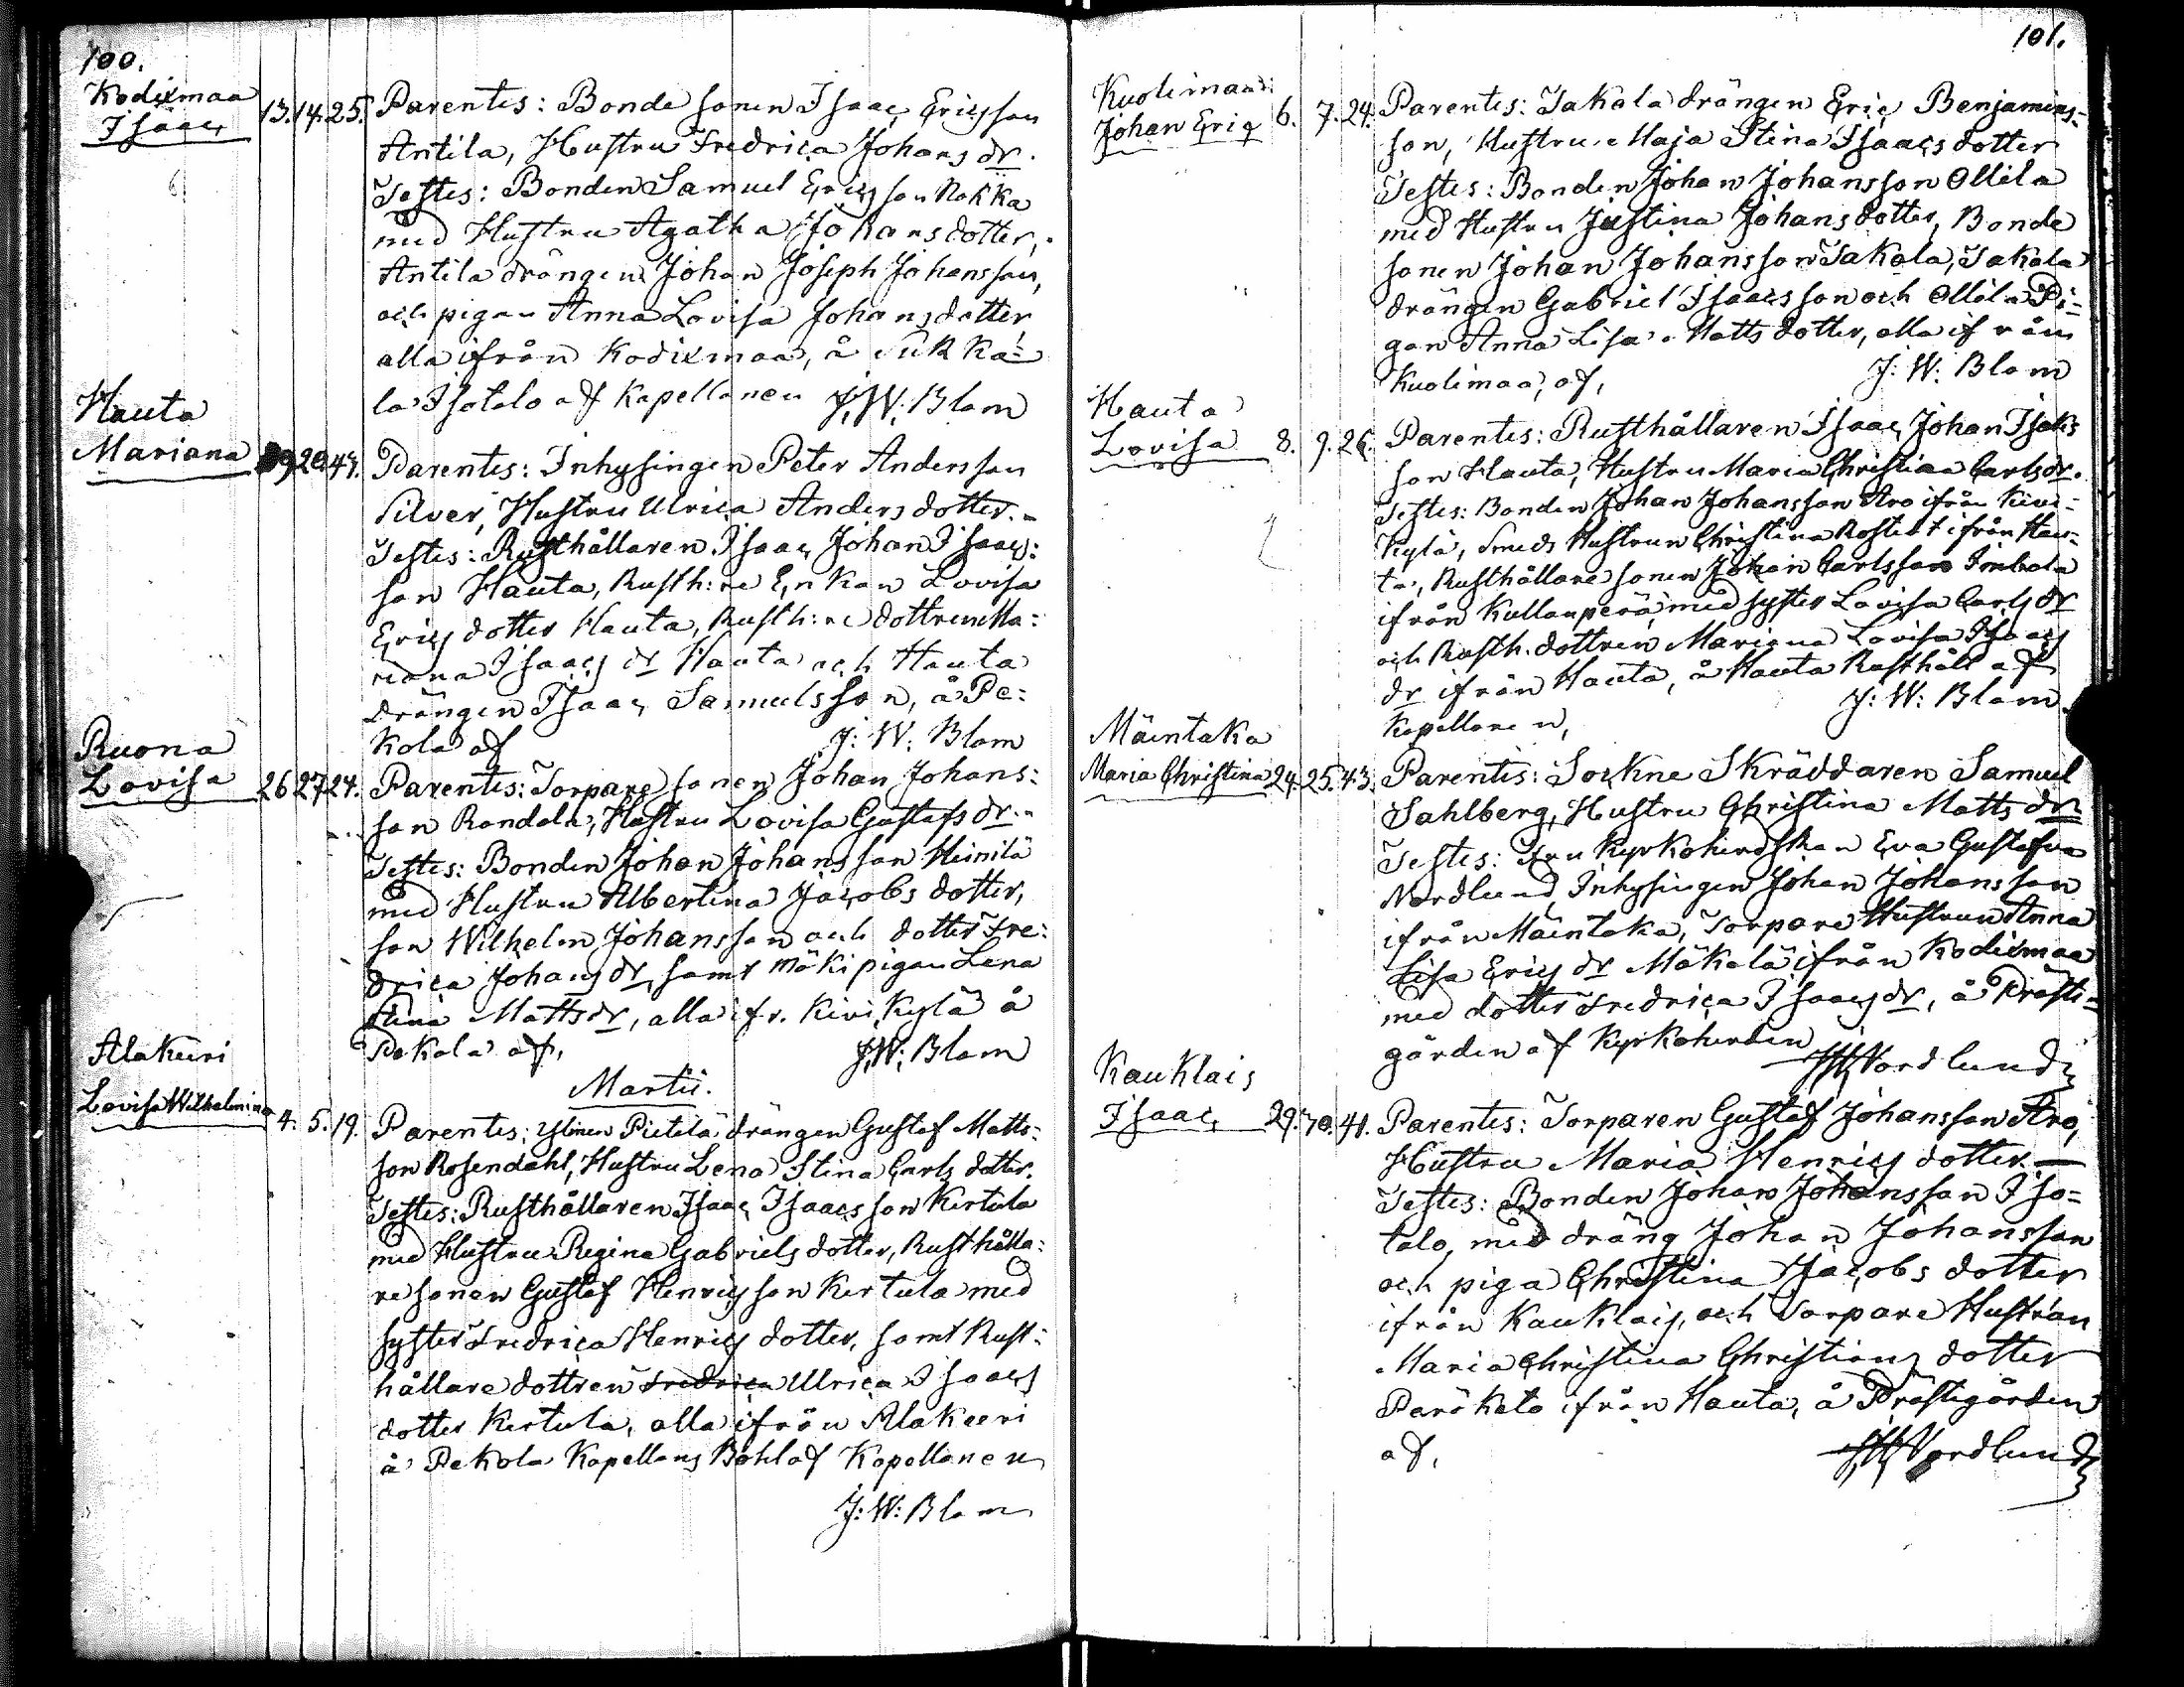 100.
Kodixmaa
Isaac 13. 14. 25. Parentes: Bonde sonen Isaac Ericsson
Antila, Hustru Fredrica Johans dr.
Testes: Bonden Samuel Ericsson Nokka
med Hustru Agatha Johansdotter,
Antila drängen Johan Joseph Johansson,
och pigan Anna Lovisa Johansdotter
alla ifrån Kodixmaa, å Sukka=
la Isotalo af Kapellanen J. W. Blom
Hauta
Mariana 19 20. 44. Parentes: Inhysingen Peter Andersson
Silver, Hustru Ulrica Andersdotter. -
Testes: Rusthållaren Isaac Johan Isaacs:
son Hauta, Rusth:re Enkan Lovisa
Ericsdotter Hauta, Rusth:re dottren Ma:
riana Isaacs dr Hauta och Hauta
drängen Isaac Samuelsson, å Pe:
kola af J: W: Blom
Ruona
Lovisa 26 27 24. Parentes: Torpare sonen Johan Johans:
son Randala, Hustru Lovisa Gustafs dr.
Testes: Bonden Johan Johansson Heinilä
med Hustru Albertina Jacobs dotter,
son Wilhelm Johansson och dotter Fre:
drica Johans dr, samt Mäki pigan Lena
Stina Matts dr, alla ifr. Kivikylä å
Pekola af, J. W: Blom
Martii.
Alakeeri
Lovisa Wilhelmina 4. 5. 19. Parentes: Ylinen Pietilä drängen Gustaf Matts:
son Rosendahl, Hustru Lena Stina Carls dotter.
Testes: Rusthållaren Isaac Isaacsson Kertula
med Hustru Regina Gabrielsdotter, Rusthålla:
re sonen Gustaf Henricsson Kertula med
syster Fredrica Henrics dotter, samt Rust:
hållare dottren Fredrica Ulrica Isaacs
dotter Kertula, alla ifrån Alakeeri
å Pekola Kapellans Bohl af Kapellanen
J: W: Blom
101.
Kuolimaa:
Johan Eric 6. 7. 24. Parentes: Jakola drängen Eric Benjamins=
son, Hustru Maja Stina Isaacs dotter
Testes: Bonden Johan Johansson Ollila
med Hustru Justina Johansdotter, Bonde
sonen Johan Johansson Jakola, Jakola
drängen Gabriel Isaacsson och Ollila Pi=
gan Anna Lisa Matts dotter, alla ifrån
Kuolimaa, af, J: W: Blom
Hauta
Lovisa 8. 9. 26. Parentes: Rusthållaren Isaac Johan Isaks
son Hauta, Hustru Maria Christina Carlsdr.
Testes: Bonden Johan Johansson Aro ifrån Kivi=
kylä, Smeds Hustrun Christina Rostedt ifrån Hau=
ta, Rusthållare sonen Johan Carlsson
ifrån Kullanperä med syster Lovisa Carls dr
och Rusth. dottren Mariana Lovisa Isaacs
dr ifrån Hauta, å Hauta Rusthåll af
Kapellanen, J: W: Blom.
Mäentaka
Maria Christina 24. 25. 43. Parentes: Sockne Skräddaren Samuel
Sahlberg, Hustru Christina Matts dr.
Testes: Fru Kyrkoherdskan Eva Gustafva
Nordlund, Inhysingen Johan Johansson
ifrån Mäentaka, Torpare Hustrun Anna
Lisa Erics dr Mäkelä ifrån Kodixmaa
med dotter Fredrica Isaacs dr, å Präste=
gården af Kyrkoherden Nordlund
Kauklais
Isaac 29. 30. 41. Parentes: Torparen Gustaf Johansson Aro,
Hustru Maria Henrics dotter. —
Testes: Bonden Johan Johansson Iso=
talo, med dräng Johan Johansson
och piga Christina Jacobs dotter
ifrån Kauklais, och Torpare Hustrun
Maria Christina Christians dotter
Paräketo ifrån Hauta, å Prästegården
af, Nordlund